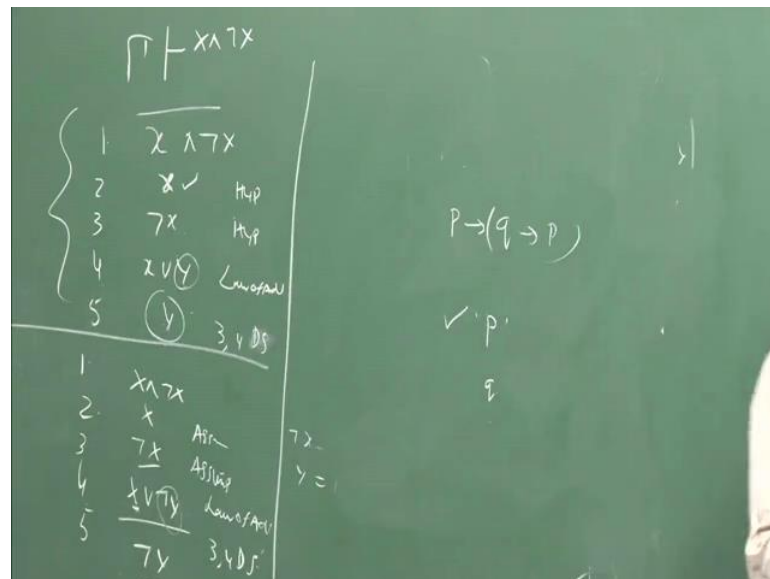 Γ ⊢ X∧¬X
1. x ∧¬X
2 x ✓ Hyp
3 ¬x Hyp
4 x∨y Law of Add
5 y 3,4 DS
1 X∧¬X
2. x
3 ¬x Assm
4 x∨¬y Law of Add
5 ¬y 3,4 DS
Assump
¬x
y =
P→(q→P)
✓ 'p'
q